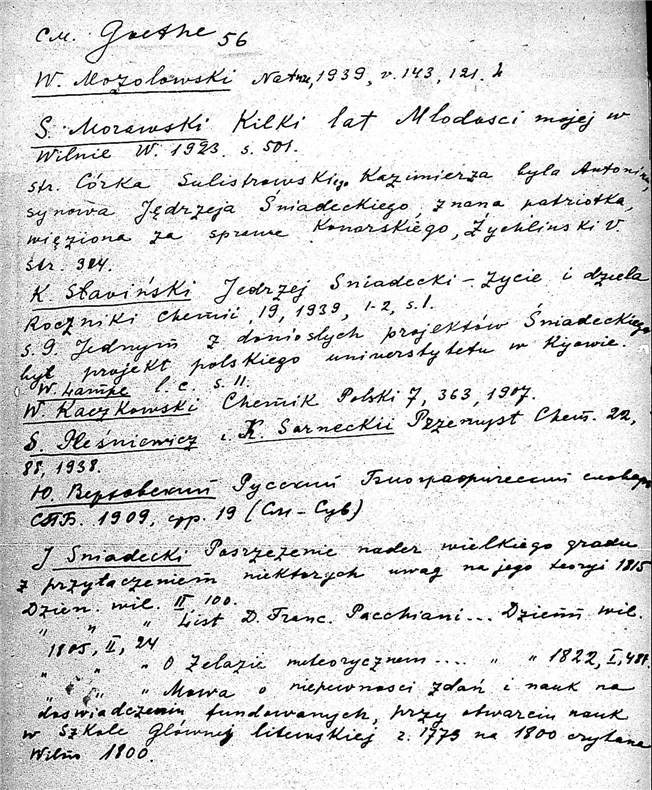 см. Goethe 56
W. Mozolowski Nature, 1939, v. 143, 121.
S. Morawski Kilki lat Młodosci mojej w
Wilnie W. 1923. s. 501.
str. Córka Sulistrowskiego Kazimierza była Antonina,
synowa Jędrzeja Śniadeckiego, znana patriotka,
więziona za sprawe Konarskiego, Żychlinski V.
str. 384.
K. Sławiński Jedrzej Sniadecki – życie i dzieła
Roczniki Chemii, 19, 1939, 1-2, s. 1.
s. 9. Jednym z doniosłych projektów Śniadeckiego
był projekt polskiego universtytetu w Kijowie.
W. Lampe l. c. s. 11.
W. Kaczkowski Chemik Polski 7, 363, 1907.
S. Pleśniewicz i K. Sarneckii Przemysł Chem. 22,
88, 1938.
Ю. Вертовский Русский Биографический словарь
СПБ. 1909, стр. 19 (См – Суб)
J Sniadecki Postrzeżenie nader wielkiego gradu
z przyłączeniem niektorych uwag na jego teoryi 1815
Dzien. wil. II, 100.
" " " List D. Franc. Pacchiani... Dzienn. wil.
1805, II, 24
" " " O Żelazie meteorycznem .... " " 1822, I, 481.
" " " Mowa o niepewnosci zdań i nauk na
doswiadczeniu fundowanych, przy otwarciu nauk
w Szkole Głównej litewskiej z. 1773 na 1800 czytana
Wilno 1800.